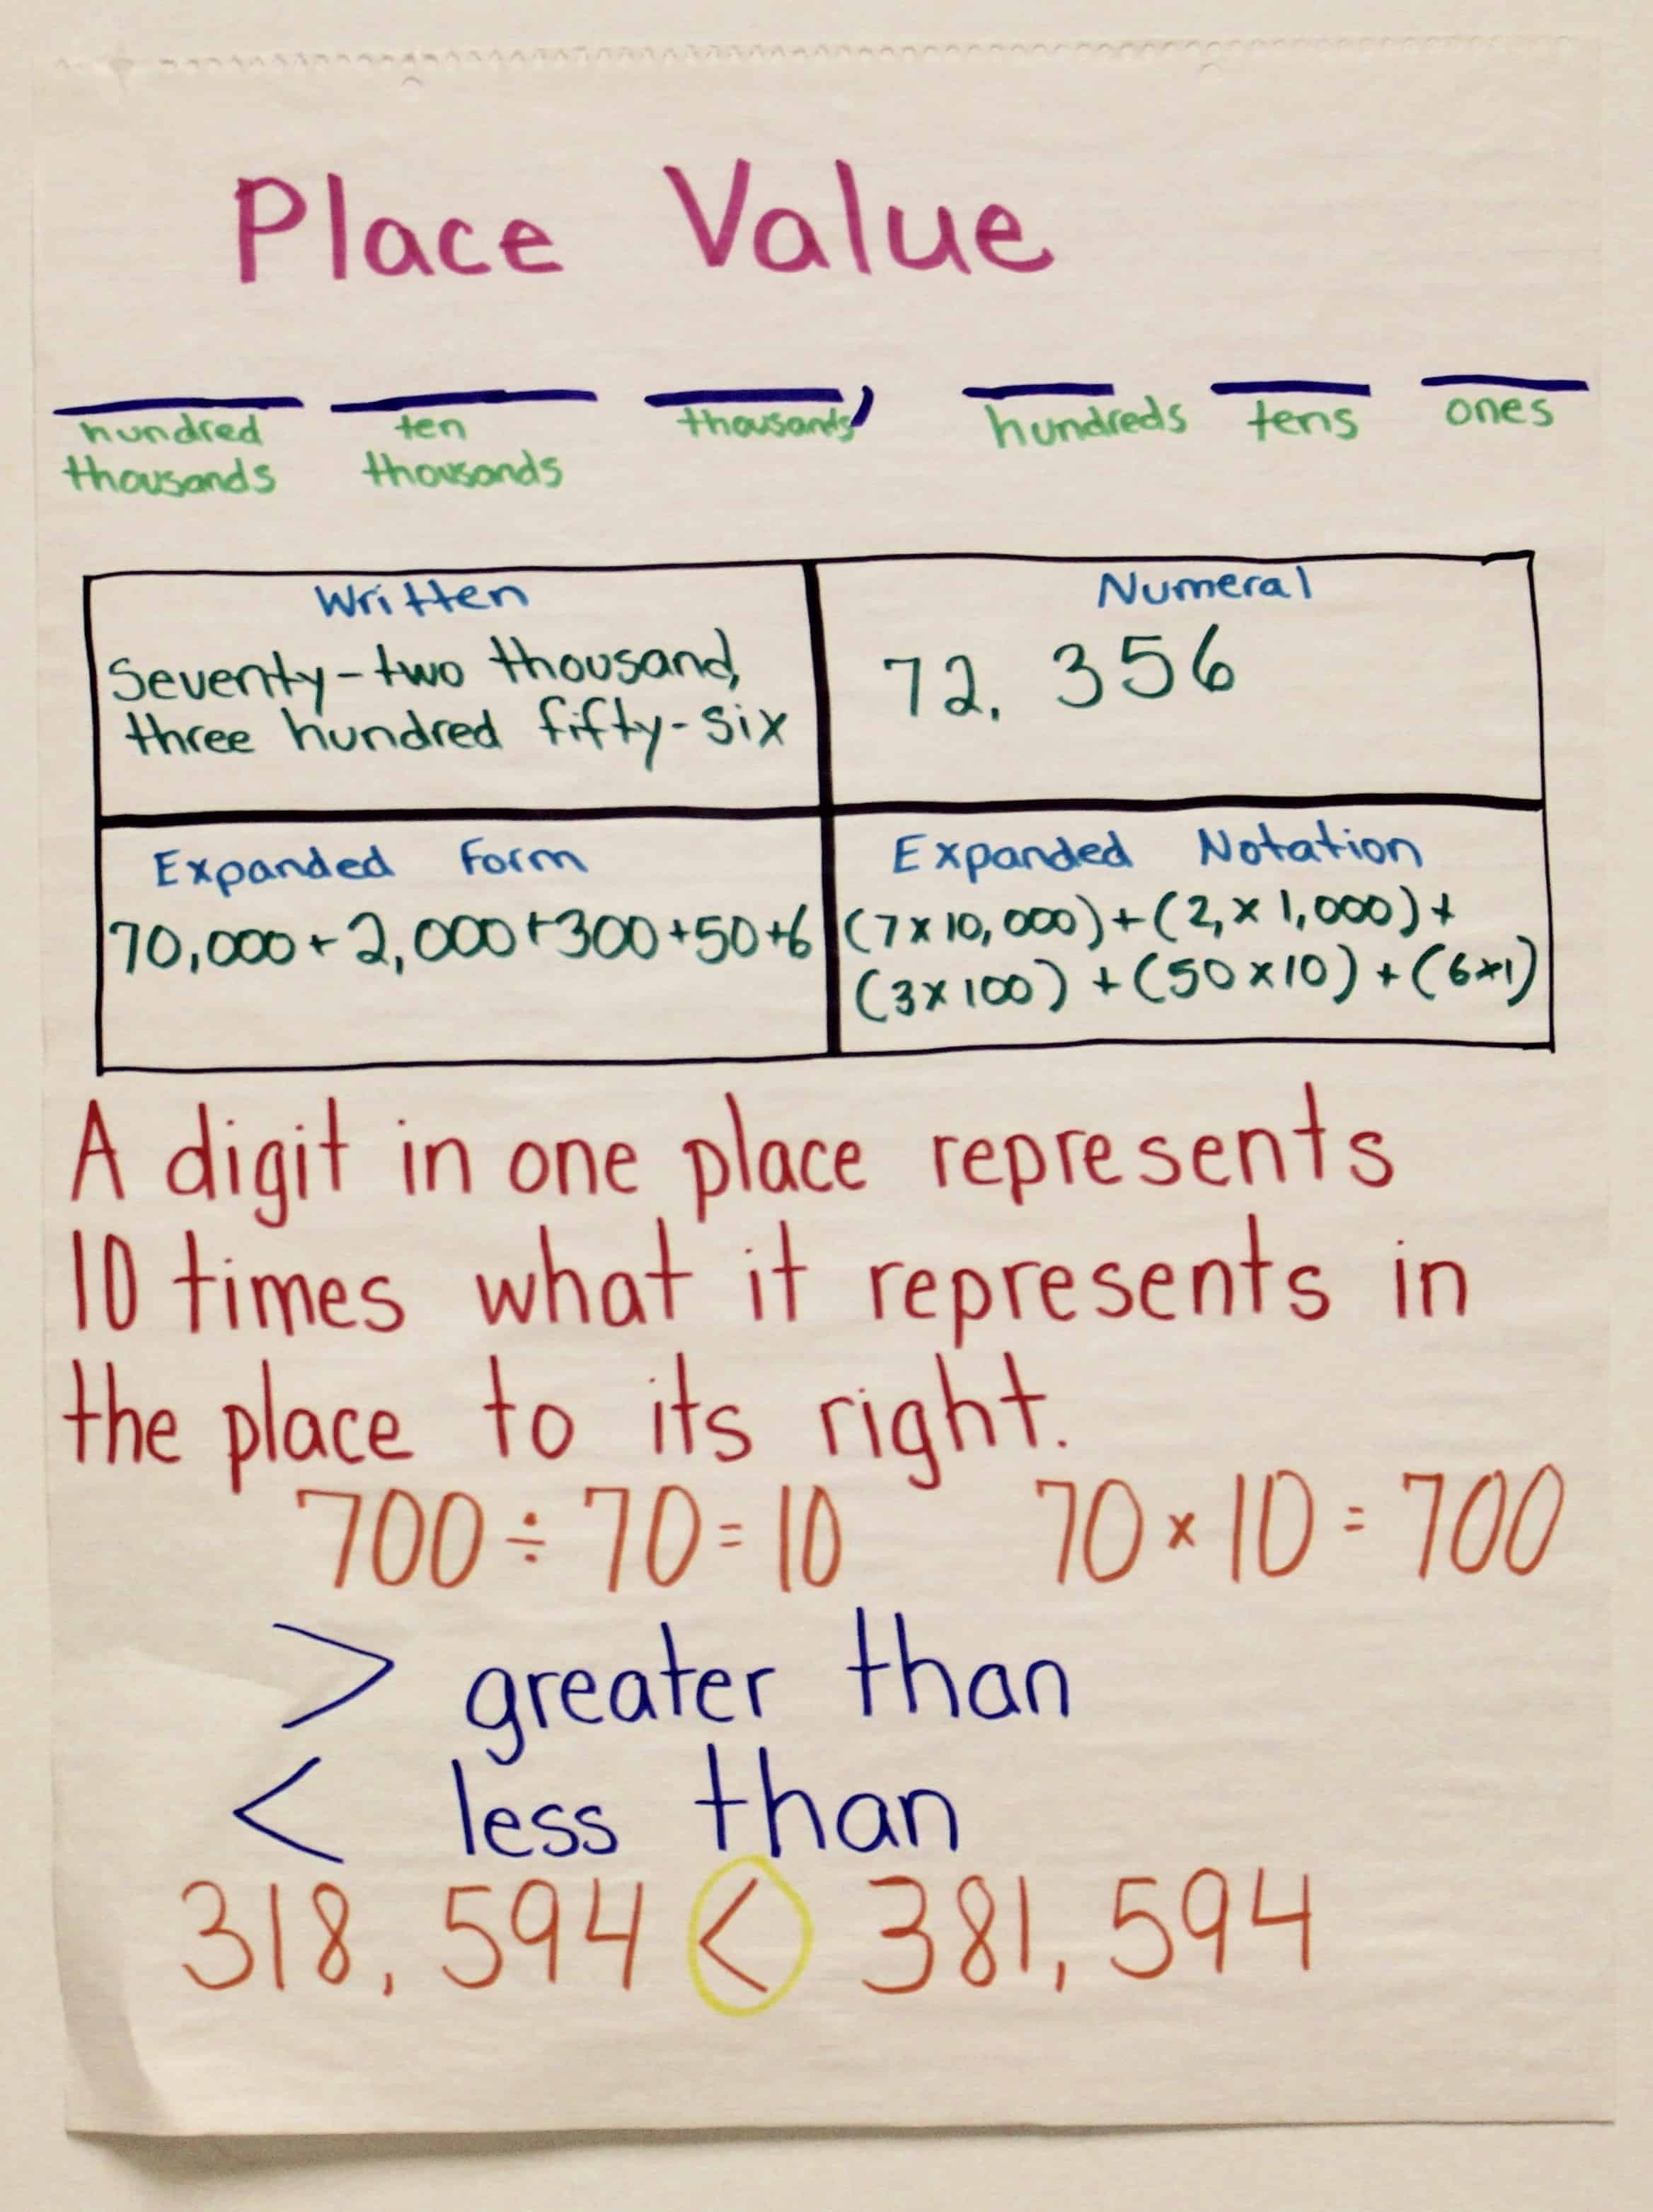 Place Value
hundred thousands ten thousands thousands, hundreds tens ones
Written
Seventy-two thousand,
three hundred fifty-six
Numeral
72, 356
Expanded Form
70,000+2,000+300+50+6
Expanded Notation
(7x10,000)+(2,x1,000)+
(3x100)+(50x10)+(6x1)
A digit in one place represents
10 times what it represents in
the place to its right.
700÷70=10 70x10=700
> greater than
< less than
318,594 < 381,594